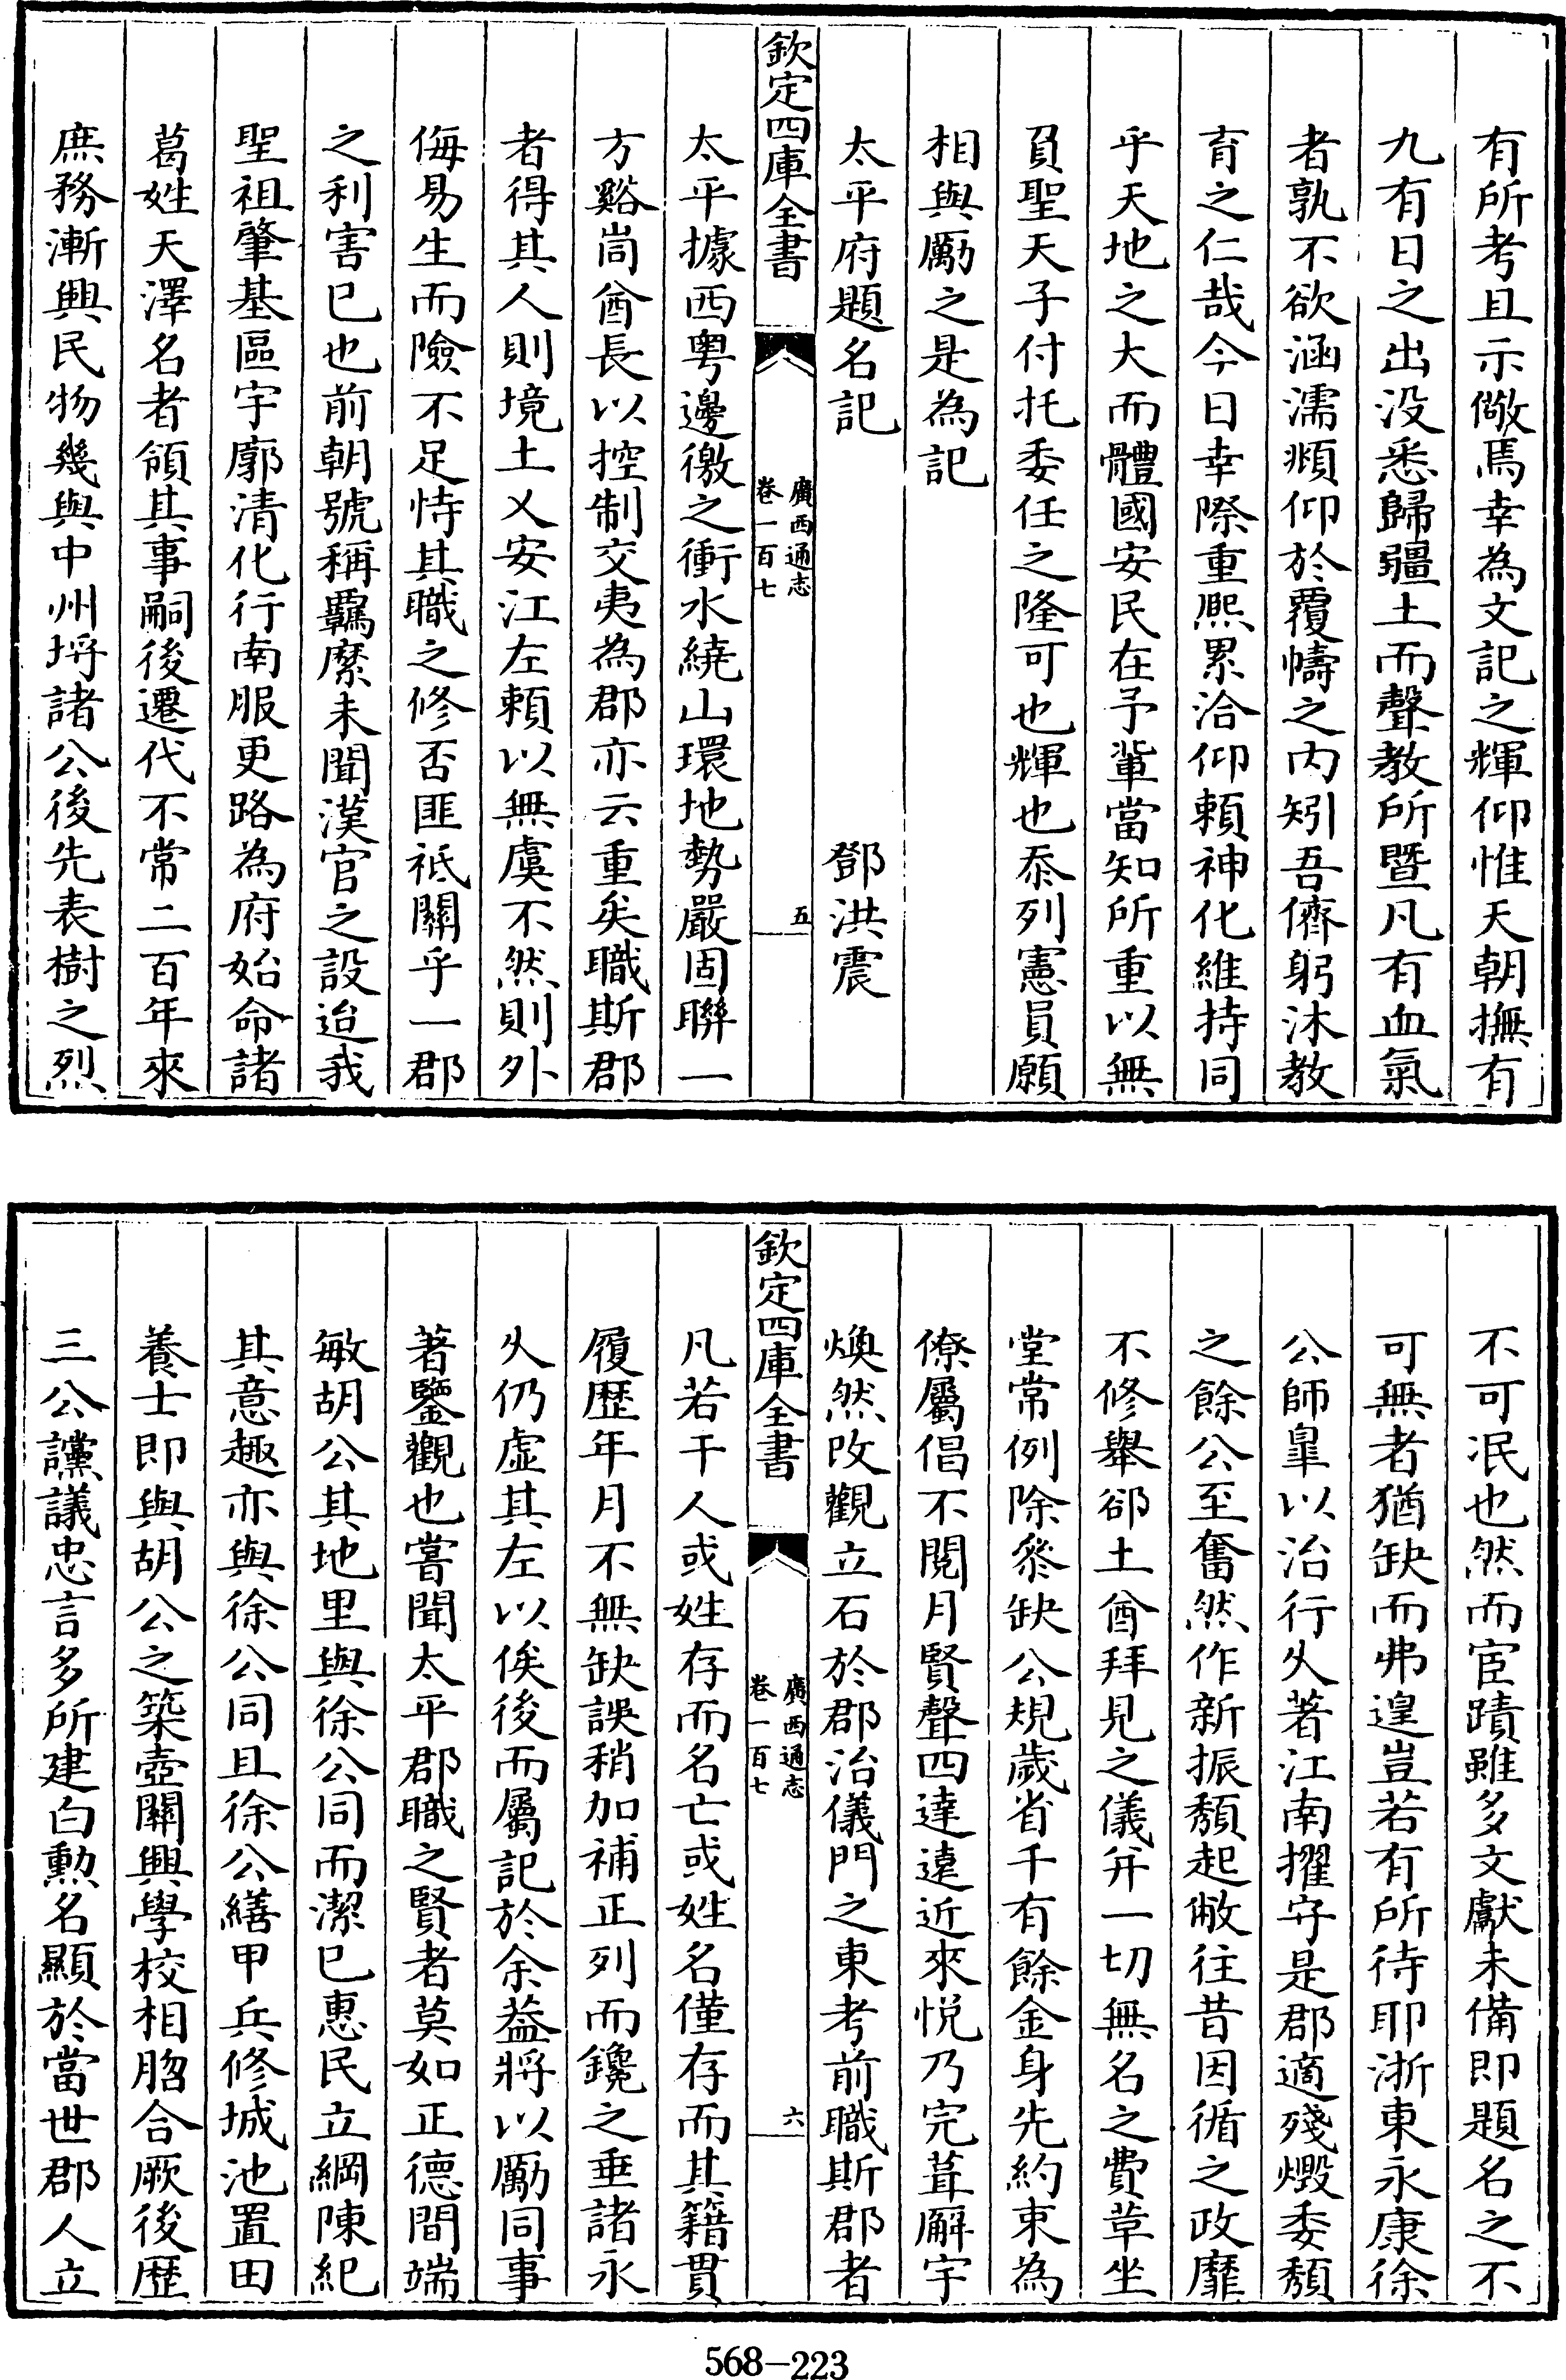 有所考且示儆焉幸為文記之輝仰惟天朝撫有
九有日之出沒悉歸疆土而聲教所暨凡有血氣
者孰不欲涵濡頫仰於覆幬之内矧吾儕躬沐教
育之仁哉今日幸際重熈累洽仰頼神化維持同
乎天地之大而體國安民在予軰當知所重以無
負聖天子付托委任之隆可也輝也忝列憲員願
相與厲之是為記
太平府題名記　　　　　鄧洪震
欽定四庫全書
廣西通志
卷一百七
五
太平據西粤邊徼之衝水繞山環地勢嚴固聯一
方谿峝酋長以控制交夷為郡亦云重矣職斯郡
者得其人則境土乂安江左頼以無虞不然則外
侮易生而險不足恃其職之修否匪祗關乎一郡
之利害已也前朝號稱羈縻未聞漢官之設迨我
聖祖肇基區宇廓清化行南服更路為府始命諸
葛姓天澤名者領其事嗣後遷代不常二百年來
庶務漸興民物幾與中州埒諸公後先表樹之烈
不可泯也然而宦蹟雖多文獻未備即題名之不
可無者猶缺而弗遑豈若有所待耶浙東永康徐
公師皐以治行乆著江南擢守是郡適殘燬委頽
之餘公至奮然作新振頽起敝往昔因循之政靡
不修舉郤土酋拜見之儀弁一切無名之費草坐
堂常例除叅缺公規歲省千有餘金身先約束為
僚屬倡不閱月賢聲四達逺近來悦乃完葺廨宇
煥然改觀立石於郡治儀門之東考前職斯郡者
欽定四庫全書
廣西通志
卷一百七
六
凡若干人或姓存而名亡或姓名僅存而其籍貫
履歴年月不無缺誤稍加補正列而鑱之垂諸永
乆仍虚其左以俟後而屬記於余葢將以厲同事
著鑒觀也嘗聞太平郡職之賢者莫如正德間端
敏胡公其地里與徐公同而潔已惠民立綱陳紀
其意趣亦與徐公同且徐公繕甲兵修城池置田
養士即與胡公之築壺關興學校相脗合厥後歴
三公讜議忠言多所建白勲名顯於當世郡人立
568-223